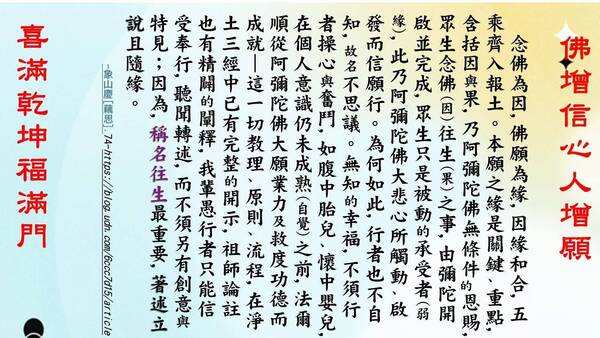 佛增信心人增願
念佛為因，佛願為緣，因緣和合，五
乘齊入報土。本願之緣是關鍵、重點，
含括因與果，乃阿彌陀佛無條件的恩賜，
眾生念佛(因)往生(果)之事，由彌陀開
啟並完成，眾生只是被動的承受者(弱
緣)，此乃阿彌陀佛大悲心所觸動、啟
發而信願行。為何如此，行者也不自
知，故名不思議。無知的幸福，不須行
者操心與奮鬥，如腹中胎兒、懷中嬰兒，
在個人意識仍未成熟(自覺)之前，法爾
順從阿彌陀佛大願業力及救度功德而
成就—這一切教理、原則、流程，在淨
土三經中已有完整的開示，祖師論註
也有精闢的闡釋，我輩愚行者只能信
受奉行，聽聞轉述，而不須另有創意與
特見；因為，稱名往生最重要，著述立
說且隨緣。
-象山慶【藕思】. 74~https://blog.udn.com/6ccc7d15/article
喜滿乾坤福滿門